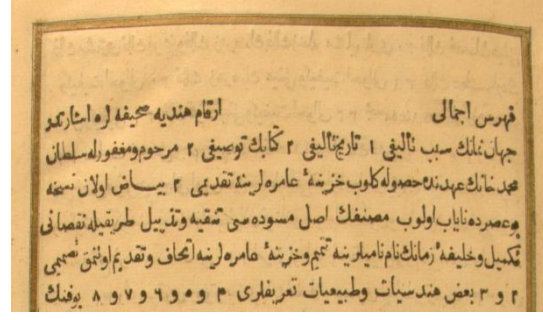 فهرس اجمالى ارقام هنديه صحيفه لره اشارتدر
جهان نمانك سبب تأليفى ١ تاريخ تأليفى ٢ كتابك توصيفى ٢ مرحوم ومغفور له سلطان
محمد خانك عهدنده حصوله كلوب خزينۀ عامره لرينه تقديمى ٢ بيـــاض اولان نسخه
بو عصرده ناياب اولوب مصنفك اصل مسوده سى تنقيه وتذييل طريقيله نقصانى
تكميل وخليفۀ زمانك نام ناميلرينه تتميم وخزينۀ عامره لرينه اتحاف وتقديم اولنمق تصميمى
٢ و ٣ بعض هندسيات وطبيعيات تعريفلرى ٤ و ٥ و ٦ و ٧ و ٨ بوفنك